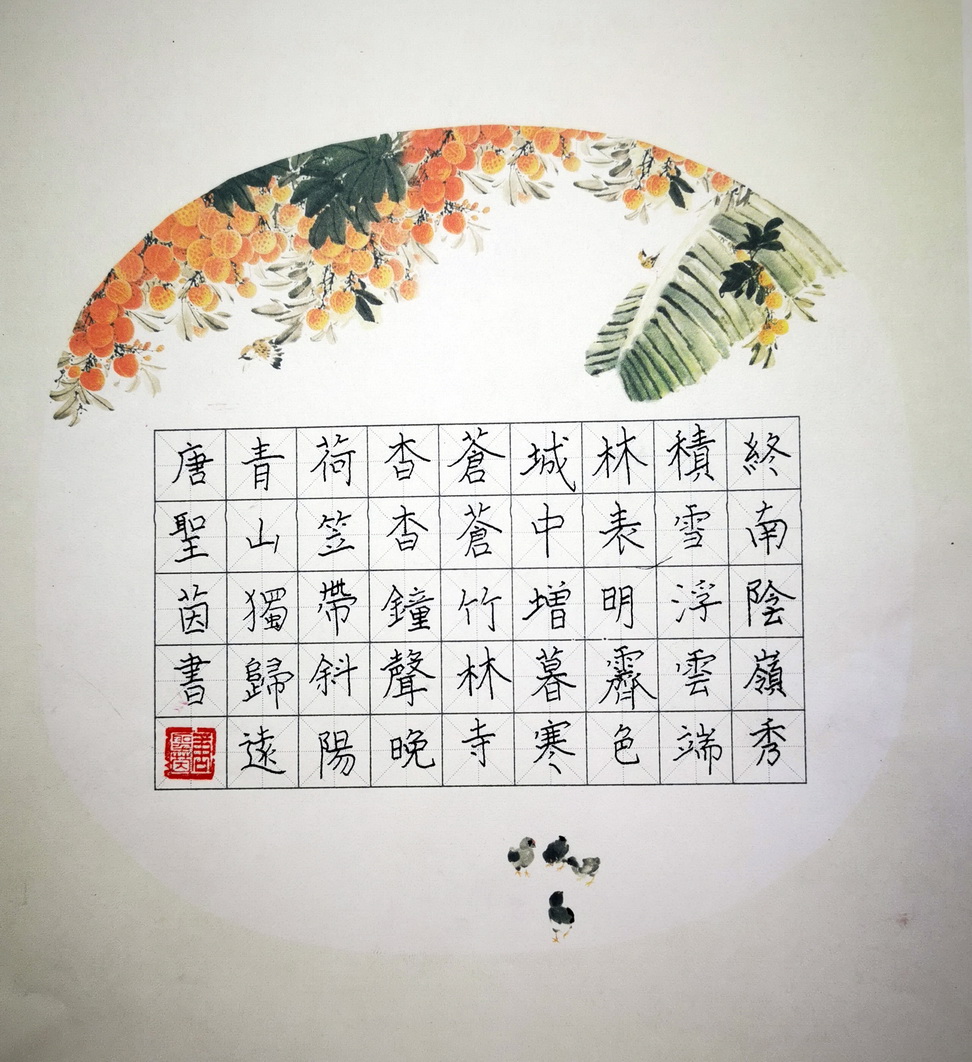 終南陰嶺秀
積雪浮雲端
林表明霽色
城中增暮寒
蒼蒼竹林寺
杳杳鐘聲晚
荷笠帶斜陽
青山獨歸遠
唐聖茵書
唐聖茵